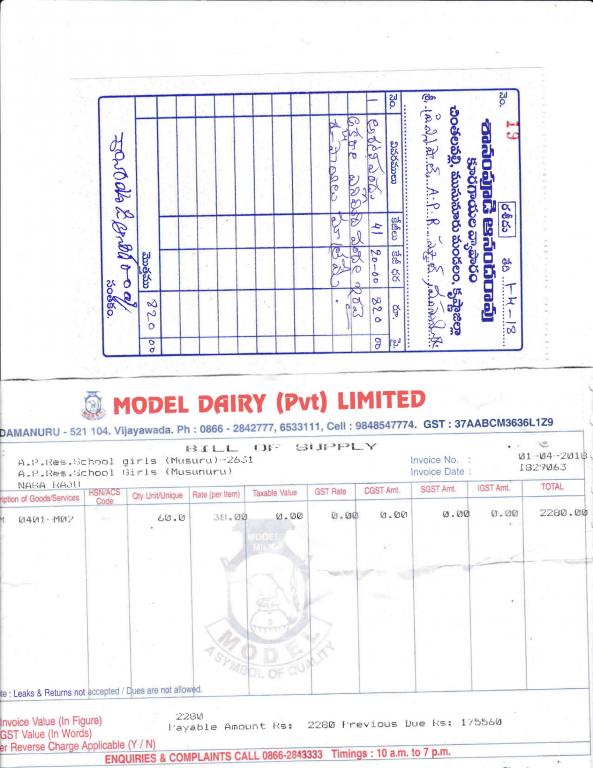 నెం. 19
రశీదు
తేది 1-4-18
కూరగాయల వ్యాపారం
చింతలవల్లి, ముసునూరు మండలం, కృష్ణాజిల్లా
A.P.R.
నెం. వివరములు కేజీలు కేజీ ధర రూ. పై.
1 41 20-00 820 00
మొత్తము 820 00
సంతకం.
MODEL DAIRY (Pvt) LIMITED
DAMANURU - 521 104. Vijayawada. Ph : 0866 - 2842777, 6533111, Cell : 9848547774. GST : 37AABCM3636L1Z9
BILL OF SUPPLY
A.P.Res.School girls (Musuru)-2631 Invoice No. : 01-04-2018
A.P.Res.School Girls (Musunuru) Invoice Date : 1829063
NABA RAJU
ription of Goods/Services HSN/ACS Code Qty Unit/Unique Rate (per Item) Taxable Value GST Rate CGST Amt. SGST Amt. IGST Amt. TOTAL
M 0401-M02 -- 60.0 38.00 0.00 0.00 0.00 0.00 0.00 2280.00
MODEL MILK
MODEL
A SYMBOL OF QUALITY
te : Leaks & Returns not accepted / Dues are not allowed.
Invoice Value (In Figure) 2280
GST Value (In Words) Payable Amount Rs: 2280 Previous Due Rs: 175560
er Reverse Charge Applicable (Y / N)
ENQUIRIES & COMPLAINTS CALL 0866-2843333 Timings : 10 a.m. to 7 p.m.